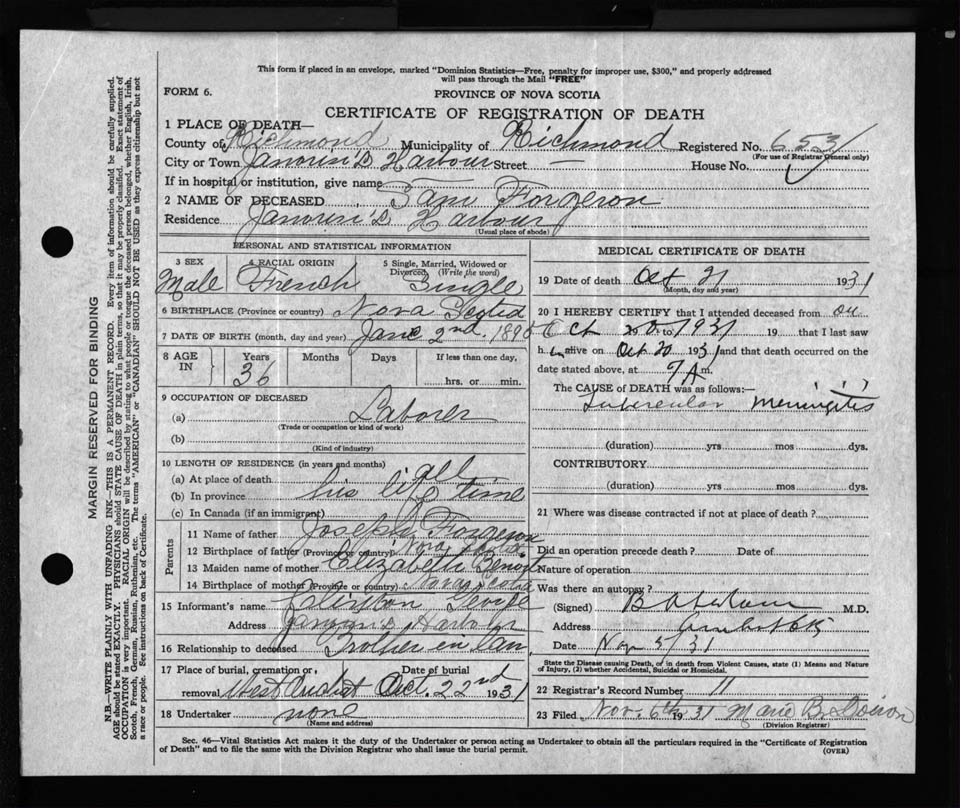 This form if placed in an envelope, marked "Dominion Statistics—Free, penalty for improper use, $300," and properly addressed
will pass through the Mail "FREE"
FORM 6.
PROVINCE OF NOVA SCOTIA
CERTIFICATE OF REGISTRATION OF DEATH
1 PLACE OF DEATH—
County of Richmond Municipality of Richmond Registered No. 653
(For use of Registrar General only)
City or Town Janvrin's Harbour Street — House No.
If in hospital or institution, give name
2 NAME OF DECEASED Forgeron
Residence Janvrin's Harbour
(Usual place of abode)
PERSONAL AND STATISTICAL INFORMATION
3 SEX 4 RACIAL ORIGIN 5 Single, Married, Widowed or
Divorced (Write the word)
Male French Single
6 BIRTHPLACE (Province or country) Nova Scotia
7 DATE OF BIRTH (month, day and year) 2nd. 1895
8 AGE IN Years Months Days If less than one day,
36 hrs. or min.
9 OCCUPATION OF DECEASED
(a) Laborer
(Trade or occupation or kind of work)
(b)
(Kind of industry)
10 LENGTH OF RESIDENCE (in years and months)
(a) At place of death all
(b) In province his life time
(c) In Canada (if an immigrant)
Parents
11 Name of father Joseph Forgeron
12 Birthplace of father (Province or country) Nova Scotia
13 Maiden name of mother Elizabeth Benoit
14 Birthplace of mother (Province or country) Nova Scotia
15 Informant's name George
Address Janvrin's Harbour
16 Relationship to deceased Brother in Law
17 Place of burial, cremation or Date of burial
removal West Arichat Oct. 22nd 1931
18 Undertaker none
(Name and address)
MEDICAL CERTIFICATE OF DEATH
19 Date of death Oct 21 1931
(Month, day and year)
20 I HEREBY CERTIFY that I attended deceased from on
Oct 20 to 1931 19 that I last saw
h im alive on Oct 20 1931 and that death occurred on the
date stated above, at 9 A m.
The CAUSE of DEATH was as follows:
Tubercular Meningitis
(duration) yrs mos dys.
CONTRIBUTORY
(duration) yrs mos dys.
21 Where was disease contracted if not at place of death?
Did an operation precede death? Date of
Nature of operation
Was there an autopsy?
(Signed) M.D.
Address Arichat
Date Nov 5/31
State the Disease causing Death, or in death from Violent Causes, state (1) Means and Nature
of Injury, (2) whether Accidental, Suicidal or Homicidal.
22 Registrar's Record Number 11
23 Filed Nov. 6th 1931 Marie B. Doiron
(Division Registrar)
Sec. 46—Vital Statistics Act makes it the duty of the Undertaker or person acting as Undertaker to obtain all the particulars required in the "Certificate of Registration
of Death" and to file the same with the Division Registrar who shall issue the burial permit. (OVER)
MARGIN RESERVED FOR BINDING
N.B.—WRITE PLAINLY WITH UNFADING INK—THIS IS A PERMANENT RECORD. Every item of information should be carefully supplied.
AGE should be stated EXACTLY. PHYSICIANS should STATE CAUSE OF DEATH in plain terms, so that it may be properly classified. Exact statement of
OCCUPATION is very important. RACIAL ORIGIN will be described by stating to what people or tongue the deceased person belonged, whether English, Irish,
Scotch, French, German, Russian, Ruthenian, etc. The terms "AMERICAN" or "CANADIAN" SHOULD NOT BE USED as they express citizenship but not
a race or people. See instructions on back of Certificate.